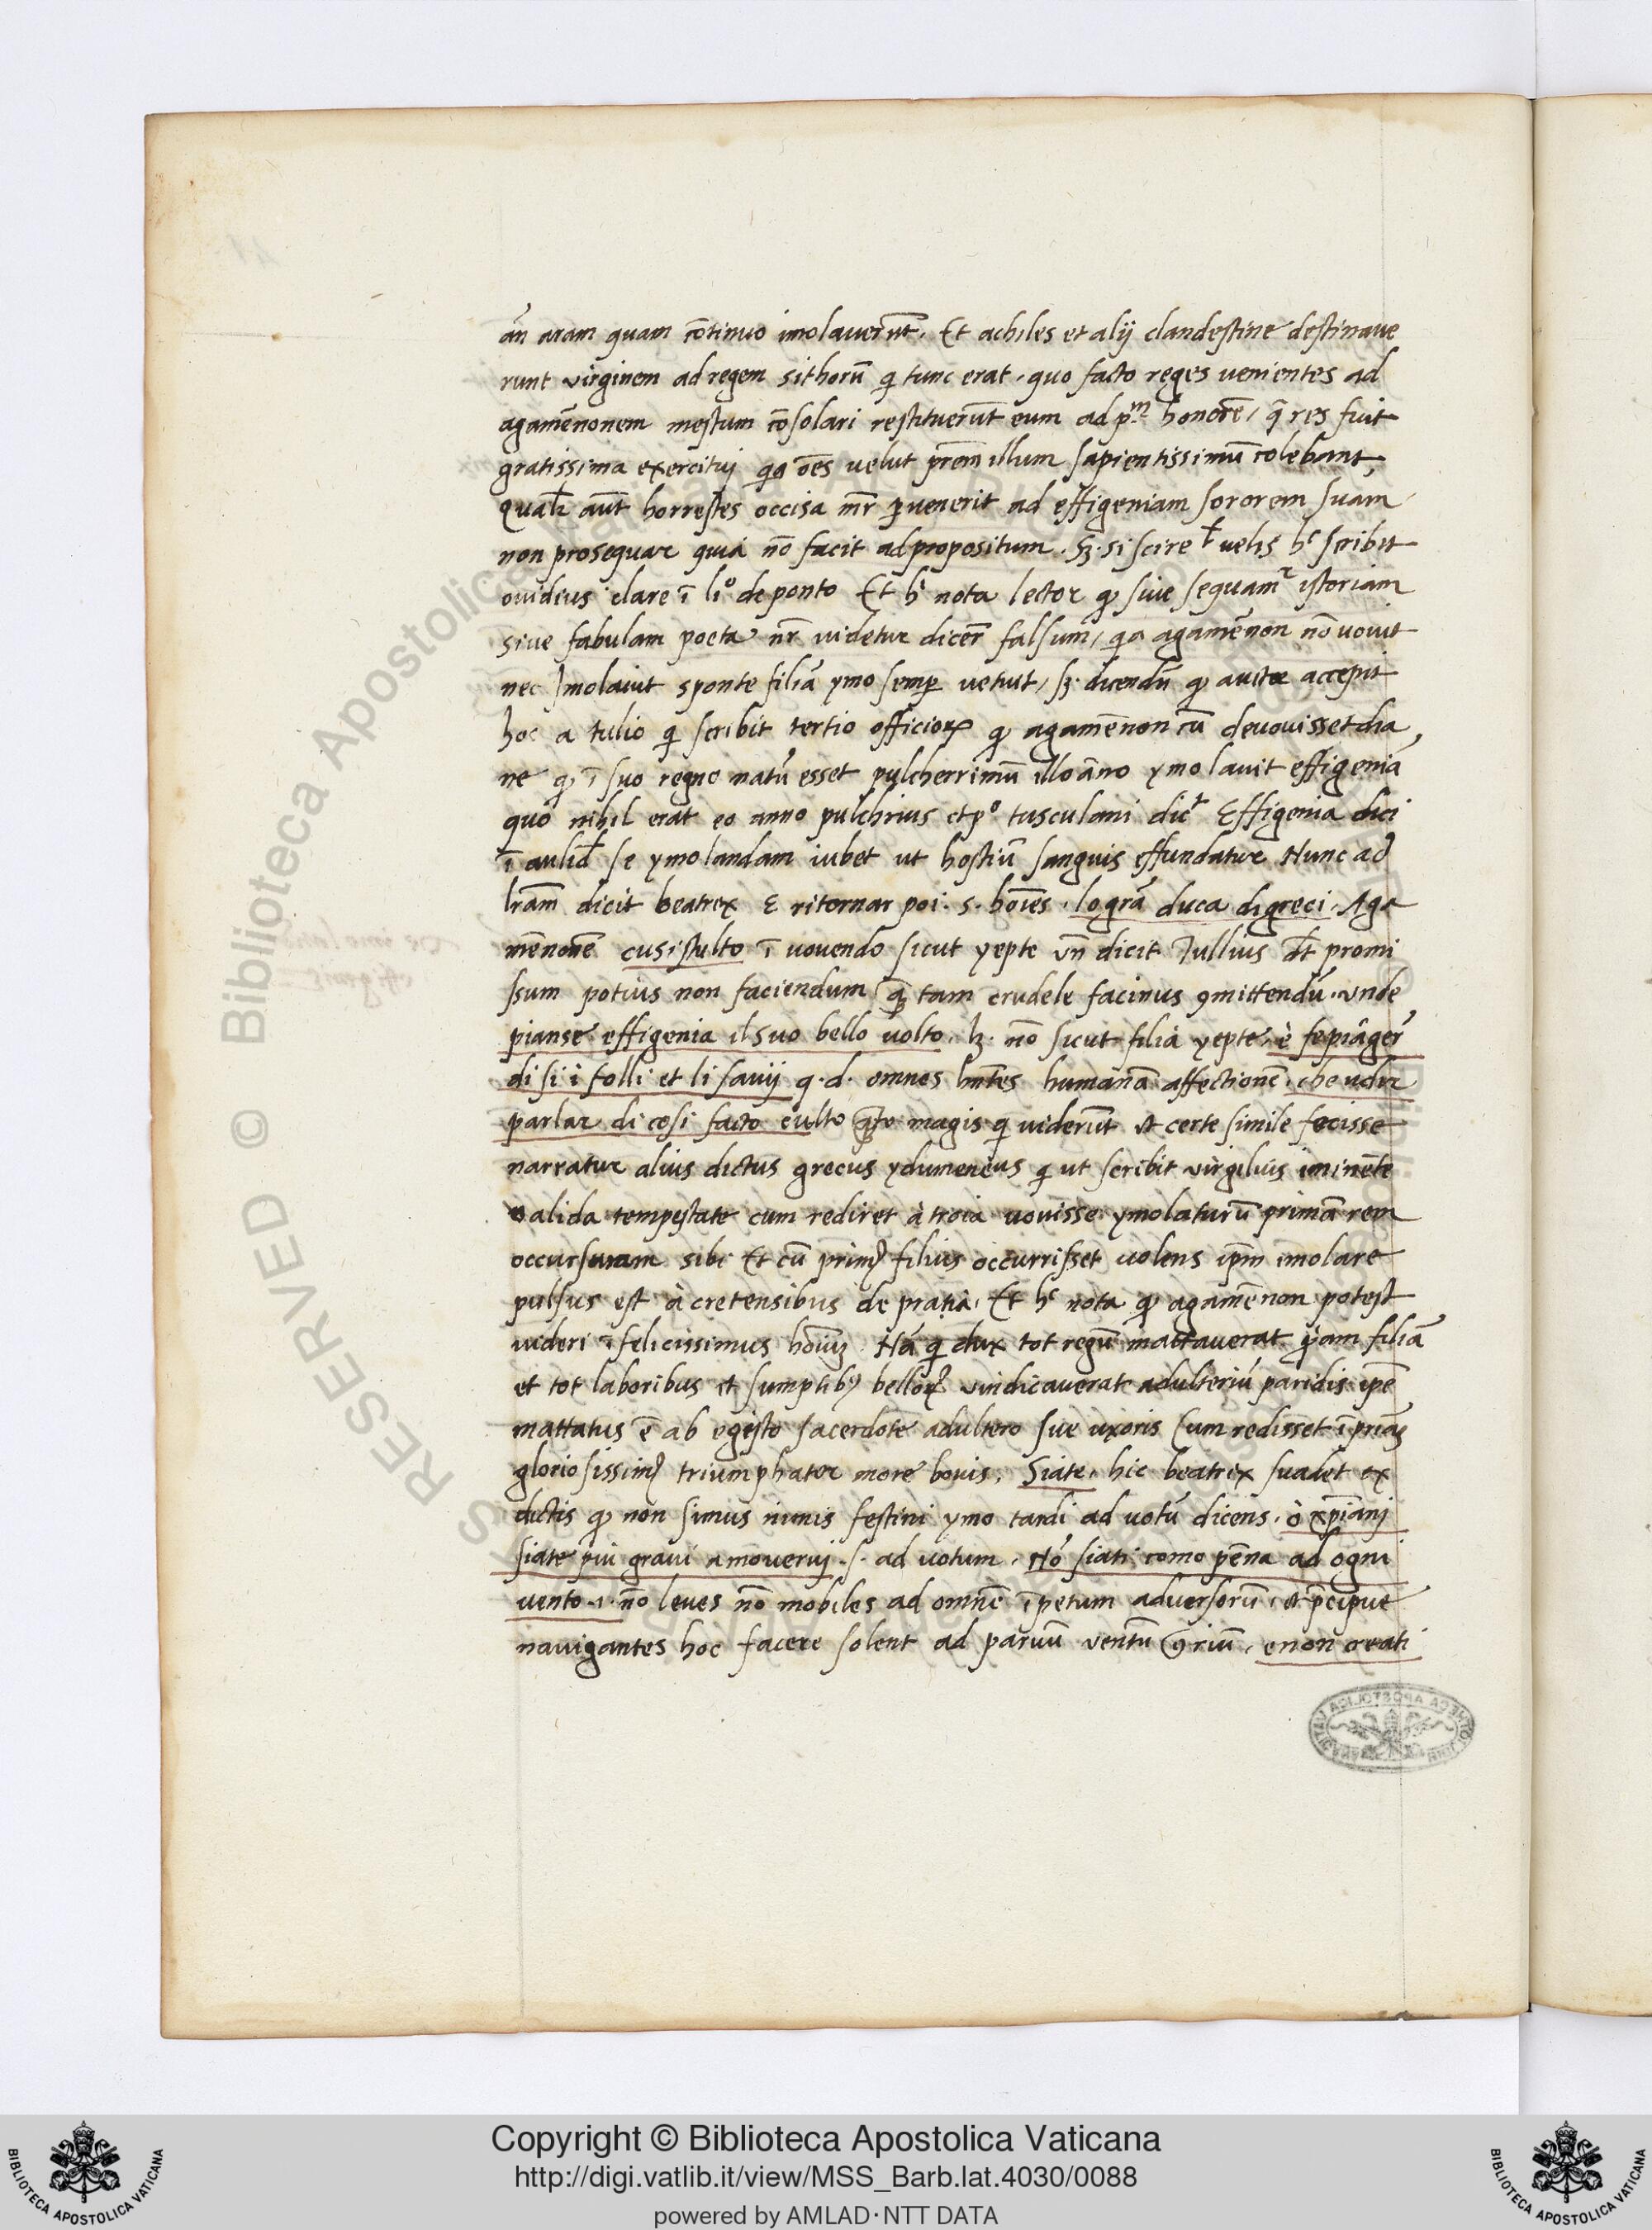 añ aram quam cõtinuo imolauerũt. Et achiles et alij clandestine destinaue
runt virginem ad regem sithorũ qi tunc erat. quo facto reges venientes ad
agamẽnonem mestum cõsolari restituerũt eum ad pm honorẽ, q̃ res fuit
gratissima exercitui qa oẽs velut prẽm illum sapientissimũ colebant,
Qualr aut̃ horrestes occisa mr̃ puenerit ad effigeniam sororem suam
non prosequar quia nõ facit ad propositum. Sz. si scire velis hc scribit
ouidius clare ĩ lio de ponto Et hc nota lector qp siue sequamr istoriam
siue fabulam poeta nr̃ videtur dicer̃ falsum, qa agamẽnon nõ vouit
nec Imolauit sponte filiã ymo semp vetuit, sz. dicendũ qp autor accepit
hoc a tulio qi scribit tertio officioꝝ qp agamẽnon cũ deuouisset dia
ne qp ĩ suo regno natũ esset pulcherrimũ illo ãno ymolauit effigeniã
quo nihil erat eo anno pulchrius et po tusculani dicr Effigenia dici
ĩ aulid se ymolandam iubet ut hostiũ sanguis effundatur Nunc ad
lrãm dicit beatrex E ritornar poi. s. hoĩes. lo grã duca di greci. Aga
mẽnonẽ cusi stulto ĩ vouendo sicut yepte vñ dicit Tullius promi
ssum potius non faciendum q̃ tam crudele facinus ꝯmittendũ. vnde
pianse effigenia il suo bello volto. lz. nõ sicut filia yepte. è fe piãger̃
di si i folli et li sauij q. d. omnes hñtes humanã affectionẽ. che vdir
parlar di cosi facto culto q̃to magis qi viderũt et certe simile fecisse
narratur alius dictus grecus ydumeneus qi ut scribit virgilius iminẽte
valida tempestate cum rediret à troia vouisse ymolaturũ primã rem
occursuram sibi Et cũ primꝰ filius occurrisset volens ipm imolare
pulsus est à cretensibus de pratia. Et hc nota qp agamẽnon potest
videri ĩfelicissimus hoĩuz. Nã qi dux tot regũ mattauerat ppiam filiã
et tot laboribus et sumptibꝰ belloꝝ vindicauerat adulteriũ paridis ipẽ
mattatus ẽ ab egisto sacerdote adultero sue uxoris Cum redisset ĩ priaz
gloriosissimꝰ triumphator more bouis. Siate. hic beatrex suadet ex
dictis qp non simus nimis festini ymo tardi ad votũ dicens. ò xpĩani
siate piu graui a mouerui. s. ad votum. Nõ siati como pẽna ad ogni
vento .i. nõ leues nõ mobiles ad omnẽ ĩpetum aduersorũ. et p̃cipue
nauigantes hoc facere solent ad paruũ ventũ ꝯrium. e non creati
Copyright © Biblioteca Apostolica Vaticana
http://digi.vatlib.it/view/MSS_Barb.lat.4030/0088
powered by AMLAD·NTT DATA
BIBLIOTECA APOSTOLICA VATICANA
BIBLIOTECA APOSTOLICA VATICANA